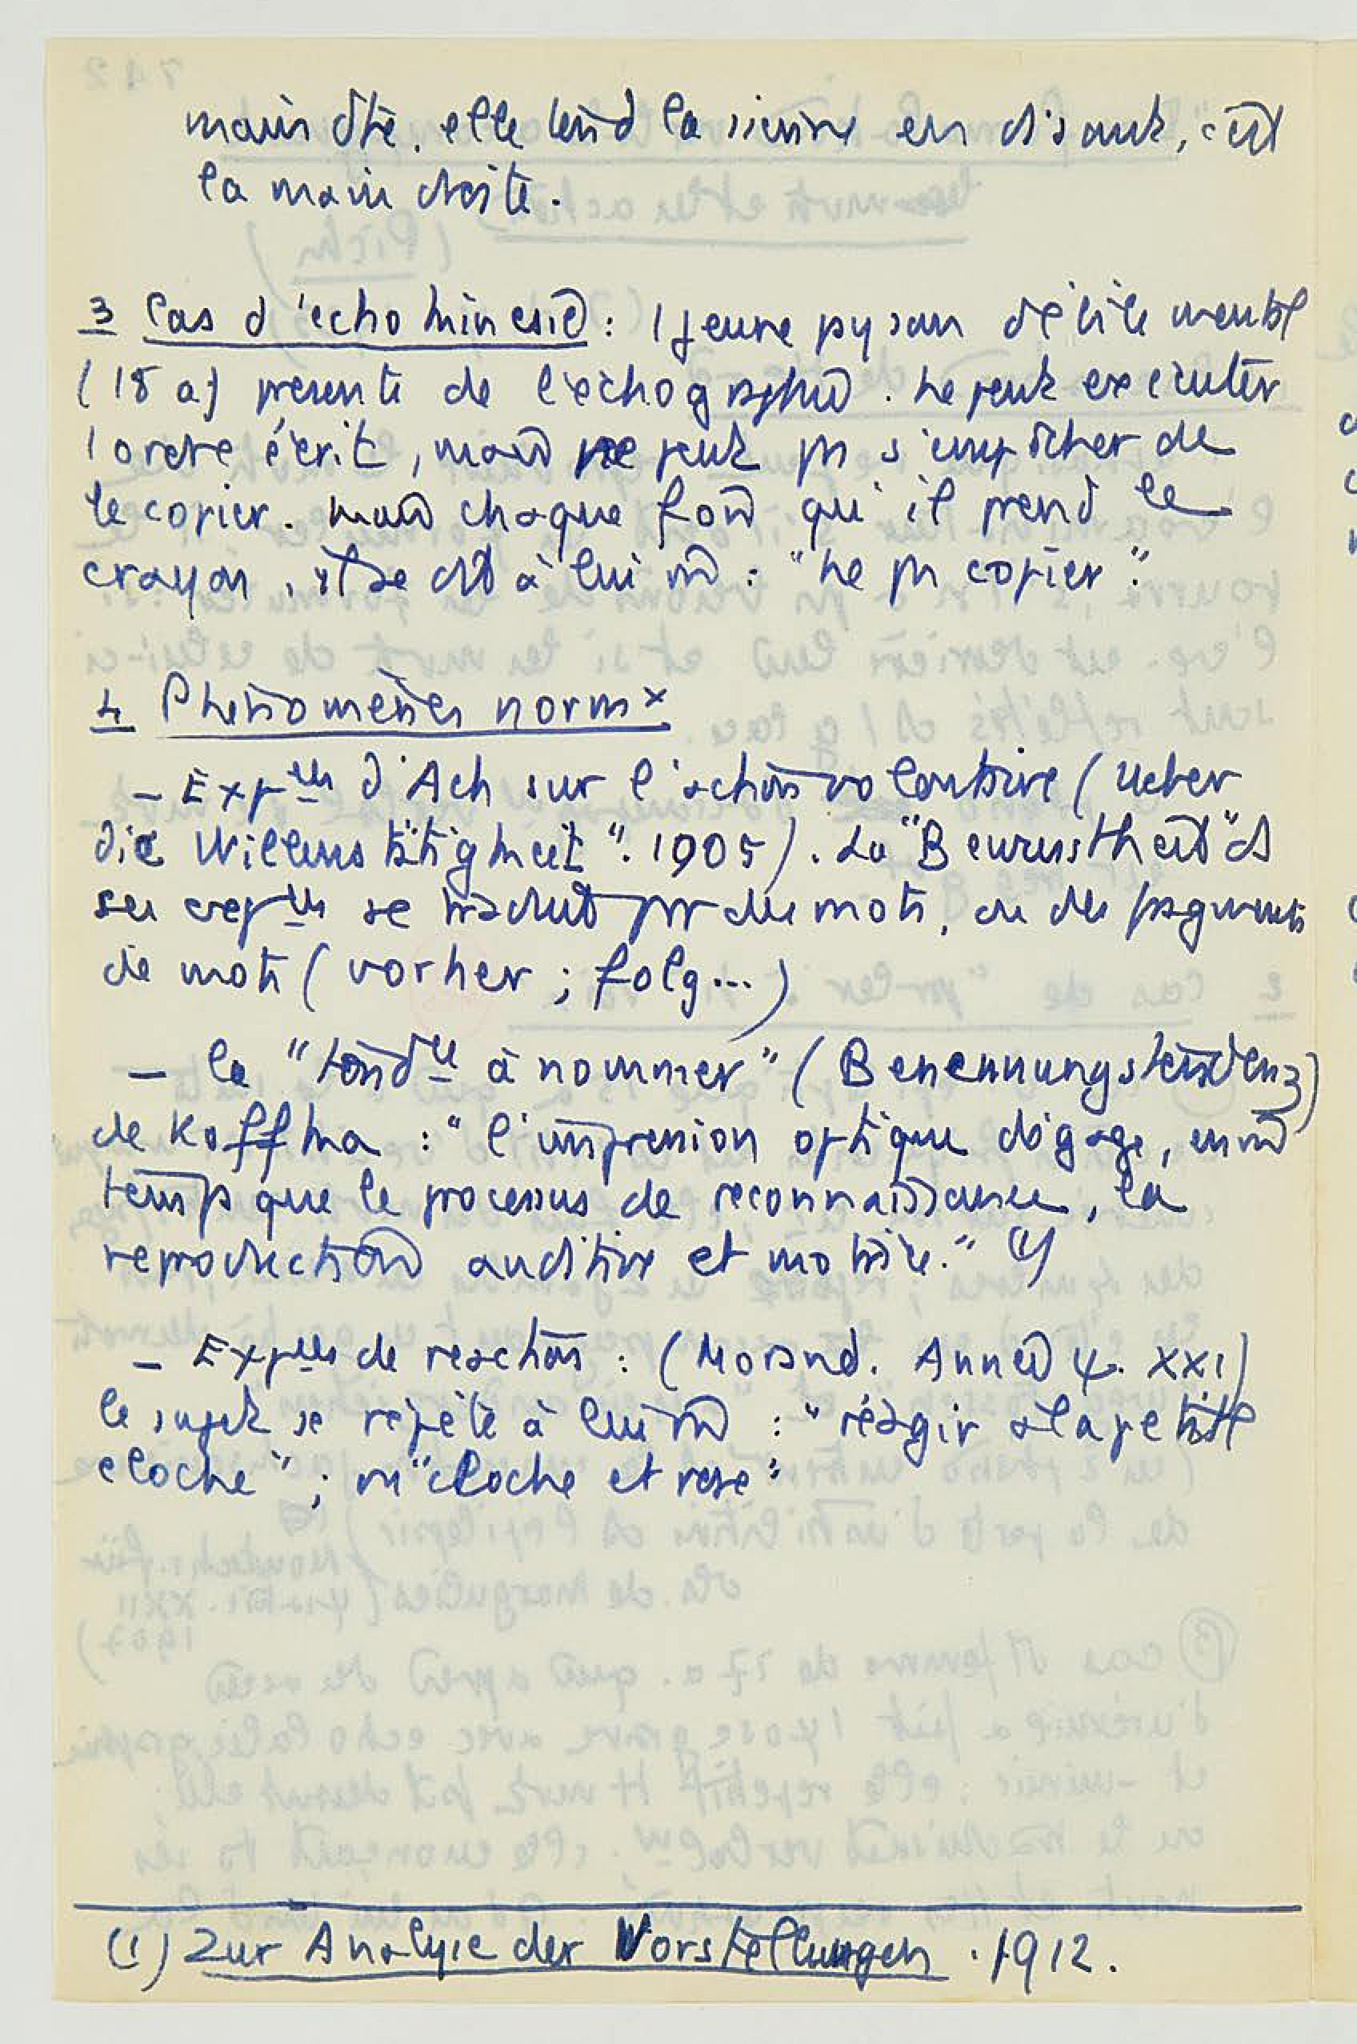 main dte. elle tend la sienne en disant, c'est
la main droite.
3 Cas d'echokinesie : 1 jeune paysan débile mental
(18 a) presente de l'echographie. Ne peut executer
l ordre écrit, mais ne peut pas s'empêcher de
le copier. mais chaque fois qu'il prend le
crayon, il se dit à lui m : "ne pas copier".
4 Phénomènes normx
- Expces d'Ach sur l'action volontaire (Ueber
die Willenstätigkeit". 1905). La "Bewusstheit" ds
ses expces se traduit par des mots, ou des fragments
de mots (vorher ; folg...)
- la "tendce à nommer" (Benennungstendenz)
de Koffka : "l'impression optique dégage, en m
temps que le processus de reconnaissance, la
reproduction auditive et motrice." (1)
- Expces de reaction : (Morand. Année ψ. XXI)
le sujet se répète à lui m : "réagir à la petite
cloche" ; "cloche et rose"
(1) Zur Analyse der Vorstellungen . 1912.